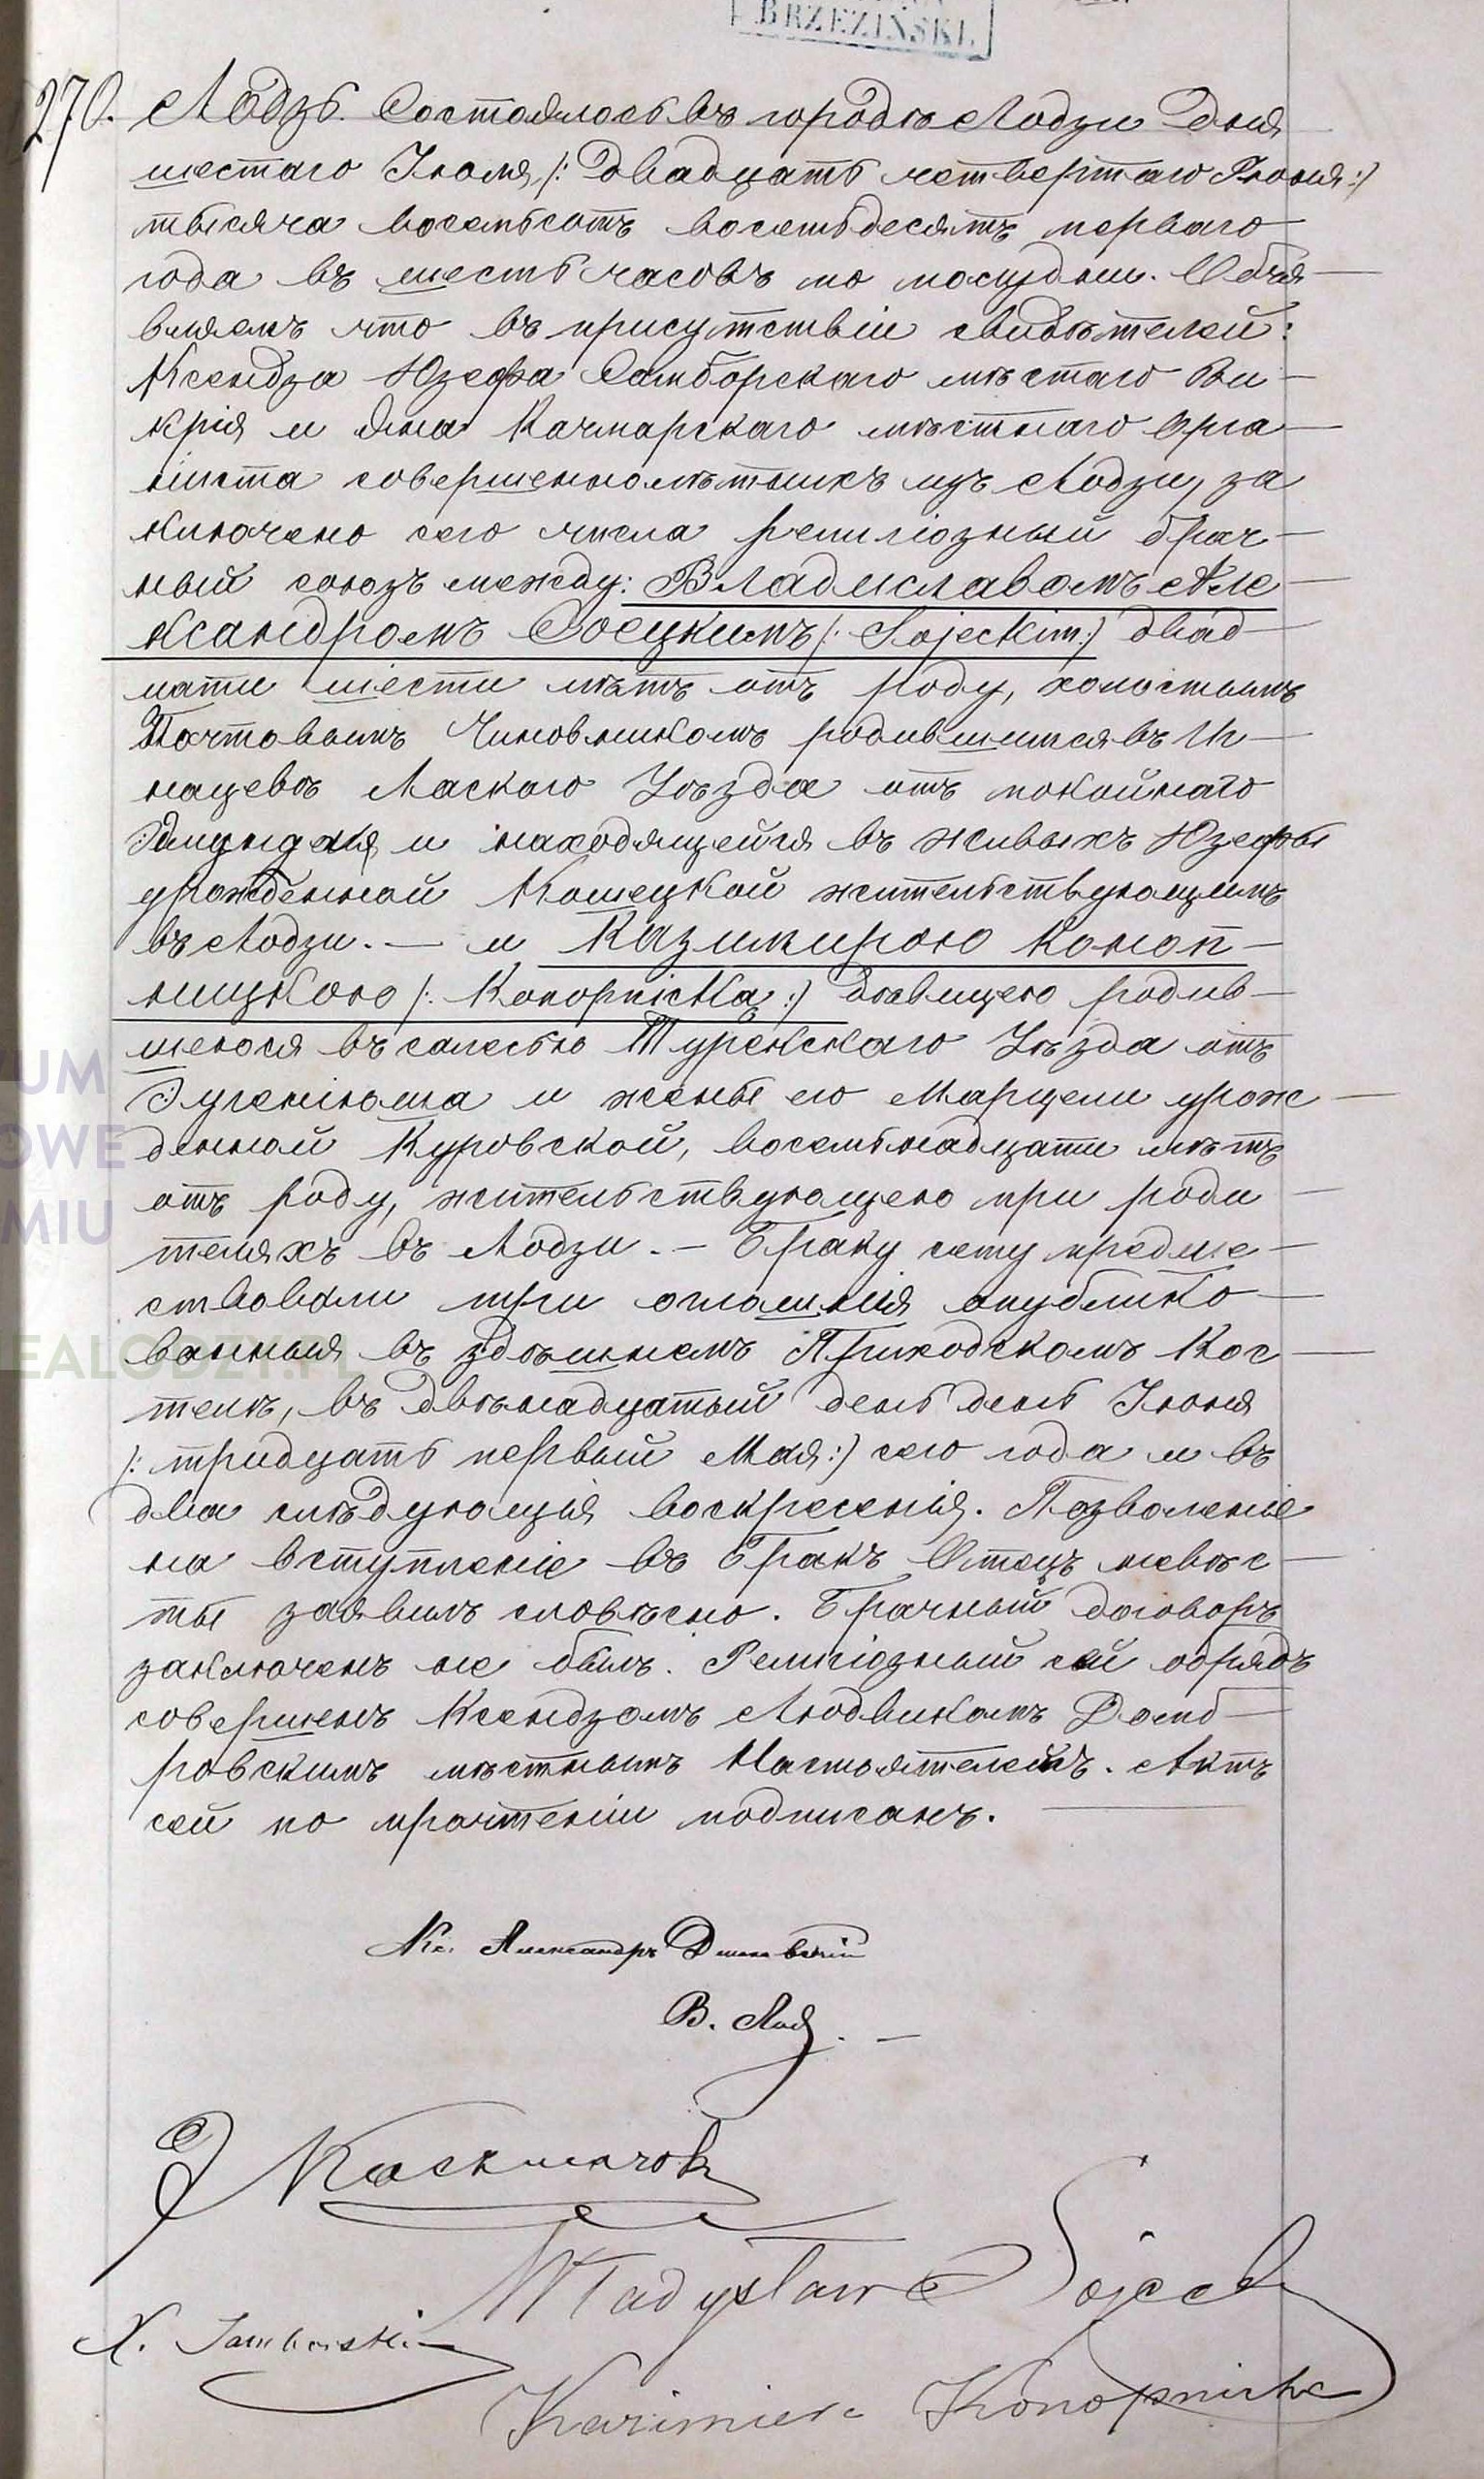 BRZEZIŃSKI.
270. Лодзь. Состоялось въ городѣ Лодзи дня
шестаго Іюля /: двадцать четвертаго Іюня :/
тысяча восемьсотъ восемьдесятъ перваго
года въ шесть часовъ по полудни. Объя
вляемъ что въ присутствіи свидѣтелей:
Ксендза Юзефа Самборскаго мѣстаго Ви-
крія и Яна Качмарскаго мѣстнаго Орга-
ниста совершеннолѣтнихъ изъ Лодзи, за
ключено сего числа религіозный брач-
ный союзъ между: Владиславомъ Але-
ксандромъ Соецкимъ /: Sojeckim :/ двад-
цати шести лѣтъ отъ роду, холостымъ
Почтовымъ Чиновникомъ родившимся въ
нацевѣ Ласкаго Уѣзда отъ покойнаго
и находящейся въ живыхъ Юзефы
урожденной Кошецкой жительствующимъ
въ Лодзи. — и Казимирою Коноп-
ницкою /: Konopnicką :/ дѣвицею родив-
шеюся въ Турекскаго Уѣзда отъ
Эугеніюша и жены его Марцели урож-
денной Куровской, восемьнадцати лѣтъ
отъ роду, жительствующею при роди-
теляхъ въ Лодзи. — Браку сему предше-
ствовали три оглошенія опублико-
ванныя въ здѣшнемъ Приходскомъ Кос-
телѣ, въ двѣнадцатый день день Іюня
/: тридцать первый Мая :/ сего года и въ
два слѣдующія воскресенія. Позволеніе
на вступленіе въ бракъ Отецъ невѣс-
ты заявилъ словѣсно. Брачный договоръ
заключенъ не былъ. Религіозный сей обрядъ
совершенъ Ксендзомъ Людвикомъ Домб-
ровскимъ мѣстнымъ Настоятелемъ. Актъ
сей по прочтеніи подписанъ.
Кс. Александръ
В.
Władysław Sojecki
X. Samborski
Kazimiera Konopnicka
UM
OWE
MIU
EALODZY.PL